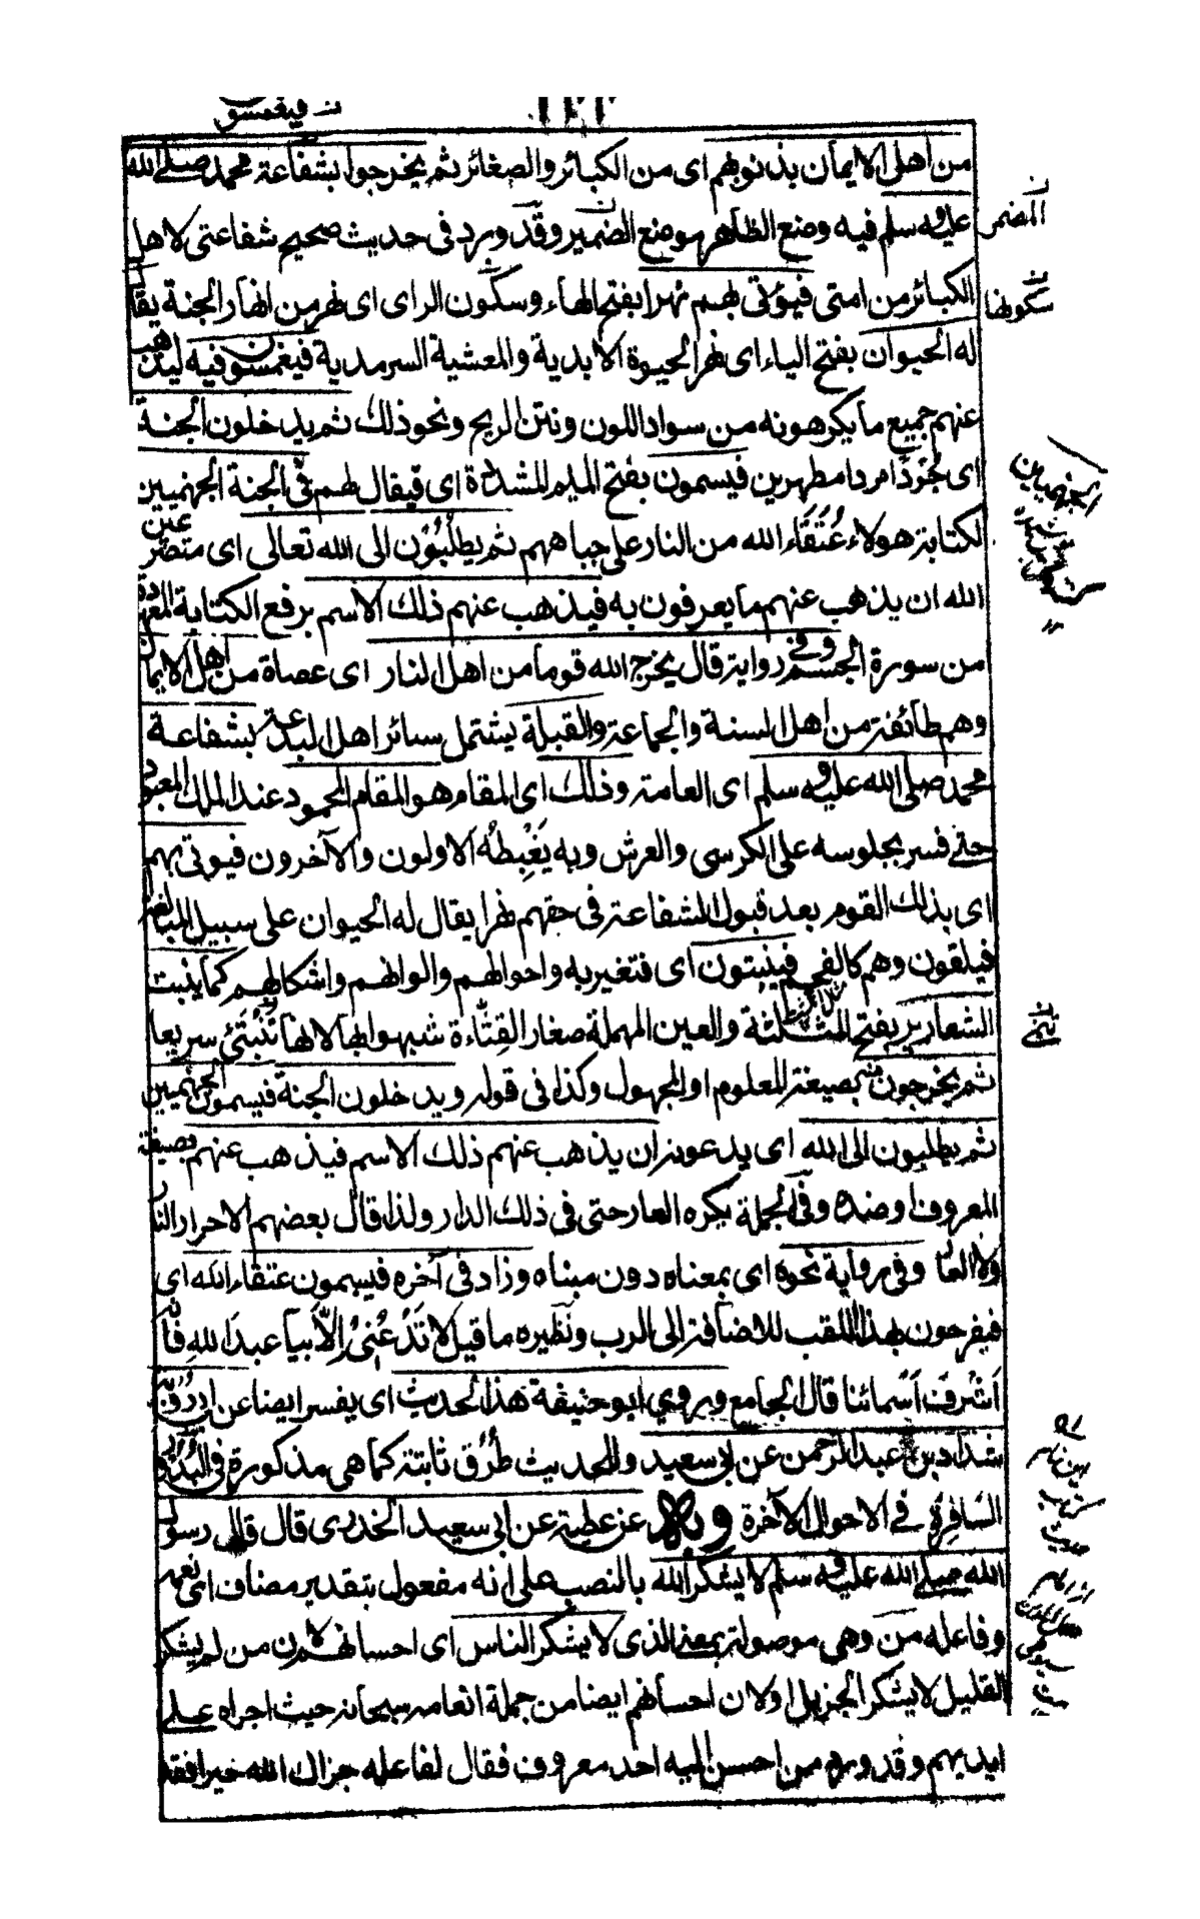 ١٢٢
فيغمسون
من اهل الايمان بذنوبهم اى من الكبائر والصغائر ثم يخرجوا بشفاعة محمد صلى الله
عليه وسلم فيه وضع الظاهر موضع الضمير وقد ورد فى حديث صحيح شفاعتى لاهل
المضمر
الكبائر من امتى فيؤتى بهم نهرا بفتح الهاء وسكون الراى اى نهر من انهار الجنة يقال
سكونها
له الحيوان بفتح الياء اى نهر الحيوة الابدية والمعشية السرمدية فيغمسون فيه ليذهب
عنهم جميع ما يكرهونه من سواد اللون ونتن الريح ونحو ذلك ثم يدخلون الجنة
اى جُردًا مردا مطهرين فيسمون بفتح الميم المشددة اى فيقال لهم فى الجنة الجهنميين
لكتابة هولاء عُتَقَاء الله من النار على جباههم ثم يطلبُوْن الى الله تعالى اى متضرعين
الله ان يذهب عنهم ما يعرفون به فيذهب عنهم ذلك الاسم برفع الكتابة المعهودة
من سورة الجسم وفى رواية قال يخرج الله قوما من اهل النار اى عصاة من اهل الايمان
وهم طائفة من اهل السنة والجماعة والقبلة يشتمل سائر اهل البدعة بشفاعة
محمد صلى الله عليه وسلم اى العامة وذلك اى المقام هو المقام المحمود عند الملك المعبود
حتى فسر بجلوسه على الكرسى والعرش وبه يَغْبِطُه الاولون والآخرون فيوتى بهم
اى بذلك القوم بعد قبول الشفاعة فى حقهم نهرا يقال له الحيوان على سبيل المبالغة
فيلقون وهم كالفحم فينبتون اى فتغير به واحوالهم والوانهم واشكالهم كما ينبت
الشعارير بفتح المثلثة والعين المهملة صغار القِثّاءة شبهوا بها لانها تَنْبُتُ سريعا
ثم يخرجون منه بصيغة المعلوم او المجهول وكذا فى قوله ويدخلون الجنة فيسمون الجهنميين
ثم يطلبون الى الله اى يدعونه ان يذهب عنهم ذلك الاسم فيذهب عنهم بصيغة
المعروف او ضده وفى الجملة يكره العار حتى فى ذلك الدار ولذا قال بعضهم الاحرار النار
ولا العار وفى رواية نحوه اى بمعناه دون مبناه وزاد فى آخره فيسمون عتقاء الله اى
فيفرحون بهذا اللقب للاضافة الى الرب ونظيره ما قيل لا تَدْعُنِىْ اِلاَّ بيا عبدَا للهِ فانه
اَشْرف اَسْمائنا قال الجامع وروى ابو حنيفة هذا الحديث اى يفسر ايضا عن
شداد بن عبد الرحمن عن ابى سعيد والحديث طُرُق ثابتة كما هى مذكورة فى البُدُور
السَّافِرَة فى الاحوال الآخرة وبه عن عطية عن ابى سعيد الخدرى قال قال رسول
الله صلى الله عليه وسلم لا يشكر الله بالنصب على انه مفعول بتقدير مضاف اى نعمه
وفاعله من وهى موصولة بمعنى الذى لا يشكر الناس اى احسانهم لان من لم يشكر
القليل لا يشكر الجزيل اولان احسانهم ايضا من جملة انعامه سبحانه حيث اجراه على
ايديهم وقد ورد من احسن اليه احد معروف فقال لفاعله جزاك الله خيرا فقد